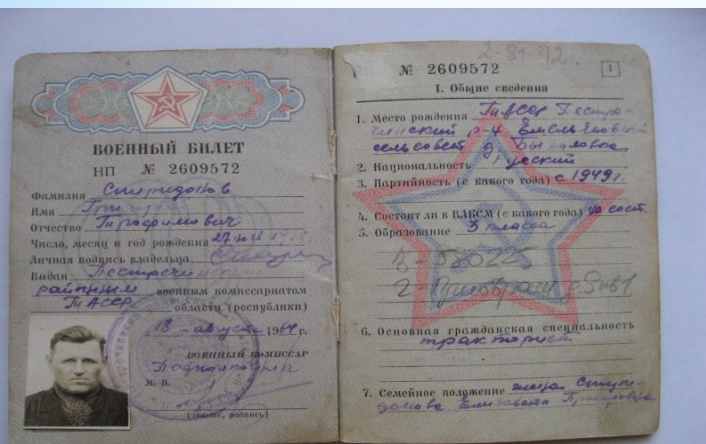 ВОЕННЫЙ БИЛЕТ
НП № 2609572
Фамилия Спиридонов
Имя
Отчество Трофимович
Число, месяц и год рождения 27
Личная подпись владельца
Выдан Пестречинским
районным военным комиссариатом
ТАССР области (республики)
18 августа 1964 г.
ВОЕННЫЙ КОМИССАР
Подполковник
М. П.
(звание, подпись)
2-81-42.
№ 2609572
1
I. Общие сведения
1. Место рождения ТАССР Пестре-
чинский р-н
сельсовет д.
2. Национальность Русский
3. Партийность (с какого года) с 1949 г.
4. Состоит ли в ВЛКСМ (с какого года) не сост.
5. Образование 3 класса
6. Основная гражданская специальность
тракторист
7. Семейное положение жена Спири-
донова Елизавета